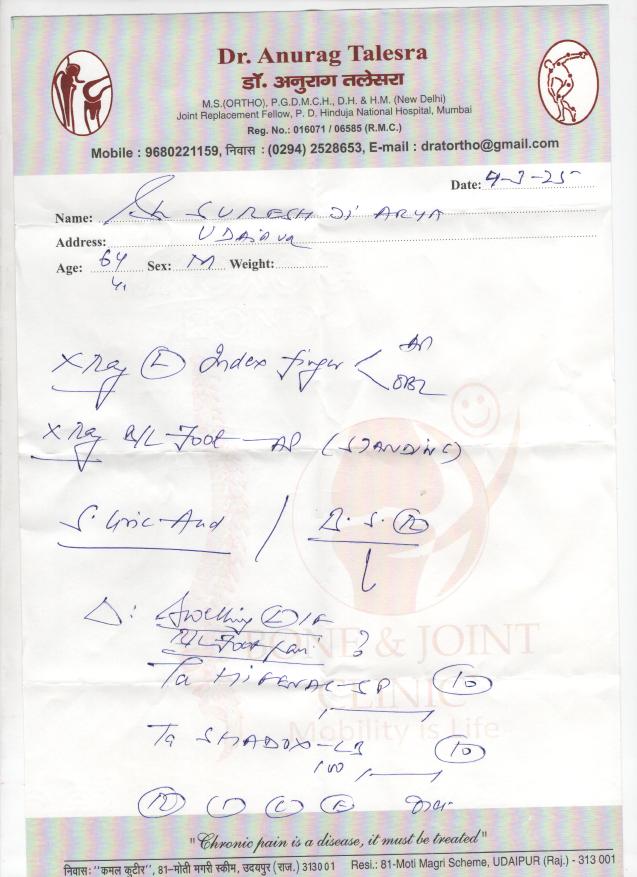 Dr. Anurag Talesra
डॉ. अनुराग तलेसरा
M.S.(ORTHO), P.G.D.M.C.H., D.H. & H.M. (New Delhi)
Joint Replacement Fellow, P. D. Hinduja National Hospital, Mumbai
Reg. No.: 016071 / 06585 (R.M.C.)
Mobile : 9680221159, निवास : (0294) 2528653, E-mail : dratortho@gmail.com
Date: 4-3-25
Name: Sh SURESH Ji ARYA
Address: UDAIPUR
Age: 64 Sex: M Weight:
X Ray (L) Index finger < AP
OBL
X Ray B/L Foot - AP (STANDING)
S. Uric-Acid / B.S. (R)
Δ: Swelling (L) IF
B/L Foot Pain ?
BONE & JOINT
CLINIC
Ta HIFENAC-SP (10)
Mobility is Life
Ta (10)
100
"Chronic pain is a disease, it must be treated"
निवास: "कमल कुटीर", 81-मोती मगरी स्कीम, उदयपुर (राज.) 313001 Resi.: 81-Moti Magri Scheme, UDAIPUR (Raj.) - 313 001